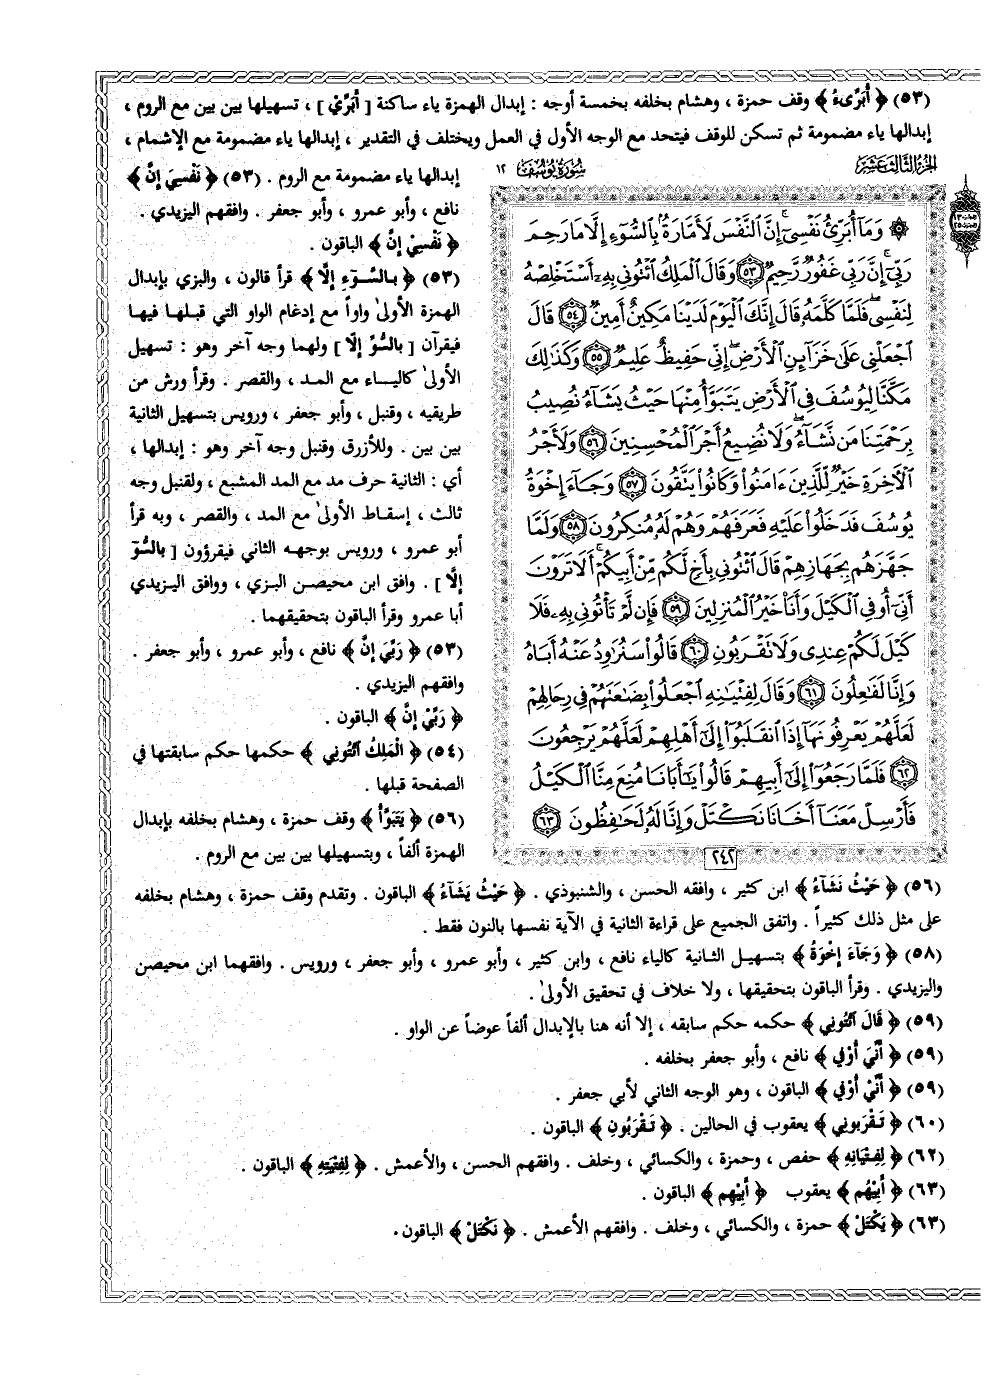 (٥٣) ﴿ أُبَرِّىءُ ﴾ وقف حمزة ، وهشام بخلفه بخمسة أوجه : إبدال الهمزة ياء ساكنة [ أُبَرِّيْ ] ، تسهيلها بين بين مع الروم ،
إبدالها ياء مضمومة ثم تسكن للوقف فيتحد مع الوجه الأول في العمل ويختلف في التقدير ، إبدالها ياء مضمومة مع الإشمام ،
الجزء الثالث عشر
سورة يوسف ١٢
إبدالها ياء مضمومة مع الروم . (٥٣) ﴿ نَفْسِيَ إِنَّ ﴾
نافع ، وأبو عمرو ، وأبو جعفر . وافقهم اليزيدي .
﴿ نَفْسِيْ إِنَّ ﴾ الباقون .
(٥٣) ﴿ بِالسُّوٓءِ إِلَّا ﴾ قرأ قالون ، والبزي بإبدال
الهمزة الأولىٰ واواً مع إدغام الواو التي قبلها فيها
فيقرآن [ بالسُّوِّ إلَّا ] ولهما وجه آخر وهو : تسهيل
الأولىٰ كالياء مع المد ، والقصر . وقرأ ورش من
طريقيه ، وقنبل ، وأبو جعفر ، ورويس بتسهيل الثانية
بين بين . وللأزرق وقنبل وجه آخر وهو : إبدالها ،
أي : الثانية حرف مد مع المد المشبع ، ولقنبل وجه
ثالث ، إسقاط الأولىٰ مع المد ، والقصر ، وبه قرأ
أبو عمرو ، ورويس بوجهه الثاني فيقرؤون [ بالسُّوٓ
إلَّا ] . وافق ابن محيصن البزي ، ووافق اليزيدي
أبا عمرو وقرأ الباقون بتحقيقهما .
(٥٣) ﴿ رَبِّيَ إِنَّ ﴾ نافع ، وأبو عمرو ، وأبو جعفر .
وافقهم اليزيدي .
﴿ رَبِّيْ إِنَّ ﴾ الباقون .
(٥٤) ﴿ الْمَلِكُ ٱئْتُونِي ﴾ حكمها حكم سابقتها في
الصفحة قبلها .
(٥٦) ﴿ يَتَبَوَّأُ ﴾ وقف حمزة ، وهشام بخلفه بإبدال
الهمزة ألفاً ، وبتسهيلها بين بين مع الروم .
۞ وَمَآ أُبَرِّئُ نَفْسِىٓ ۚ إِنَّ ٱلنَّفْسَ لَأَمَّارَةٌۢ بِٱلسُّوٓءِ إِلَّا مَا رَحِمَ
رَبِّىٓ ۚ إِنَّ رَبِّى غَفُورٌ رَّحِيمٌ ٥٣ وَقَالَ ٱلْمَلِكُ ٱئْتُونِى بِهِۦٓ أَسْتَخْلِصْهُ
لِنَفْسِى ۖ فَلَمَّا كَلَّمَهُۥ قَالَ إِنَّكَ ٱلْيَوْمَ لَدَيْنَا مَكِينٌ أَمِينٌ ٥٤ قَالَ
ٱجْعَلْنِى عَلَىٰ خَزَآئِنِ ٱلْأَرْضِ ۖ إِنِّى حَفِيظٌ عَلِيمٌ ٥٥ وَكَذَٰلِكَ
مَكَّنَّا لِيُوسُفَ فِى ٱلْأَرْضِ يَتَبَوَّأُ مِنْهَا حَيْثُ يَشَآءُ ۚ نُصِيبُ
بِرَحْمَتِنَا مَن نَّشَآءُ ۖ وَلَا نُضِيعُ أَجْرَ ٱلْمُحْسِنِينَ ٥٦ وَلَأَجْرُ
ٱلْـَٔاخِرَةِ خَيْرٌ لِّلَّذِينَ ءَامَنُوا۟ وَكَانُوا۟ يَتَّقُونَ ٥٧ وَجَآءَ إِخْوَةُ
يُوسُفَ فَدَخَلُوا۟ عَلَيْهِ فَعَرَفَهُمْ وَهُمْ لَهُۥ مُنكِرُونَ ٥٨ وَلَمَّا
جَهَّزَهُم بِجَهَازِهِمْ قَالَ ٱئْتُونِى بِأَخٍ لَّكُم مِّنْ أَبِيكُمْ ۚ أَلَا تَرَوْنَ
أَنِّىٓ أُوفِى ٱلْكَيْلَ وَأَنَا۠ خَيْرُ ٱلْمُنزِلِينَ ٥٩ فَإِن لَّمْ تَأْتُونِى بِهِۦ فَلَا
كَيْلَ لَكُمْ عِندِى وَلَا تَقْرَبُونِ ٦٠ قَالُوا۟ سَنُرَٰوِدُ عَنْهُ أَبَاهُ
وَإِنَّا لَفَٰعِلُونَ ٦١ وَقَالَ لِفِتْيَٰنِهِ ٱجْعَلُوا۟ بِضَٰعَتَهُمْ فِى رِحَالِهِمْ
لَعَلَّهُمْ يَعْرِفُونَهَآ إِذَا ٱنقَلَبُوٓا۟ إِلَىٰٓ أَهْلِهِمْ لَعَلَّهُمْ يَرْجِعُونَ
٦٢ فَلَمَّا رَجَعُوٓا۟ إِلَىٰٓ أَبِيهِمْ قَالُوا۟ يَٰٓأَبَانَا مُنِعَ مِنَّا ٱلْكَيْلُ
فَأَرْسِلْ مَعَنَآ أَخَانَا نَكْتَلْ وَإِنَّا لَهُۥ لَحَٰفِظُونَ ٦٣
٢٤٢
(٥٦) ﴿ حَيْثُ نَشَآءُ ﴾ ابن كثير ، وافقه الحسن ، والشنبوذي . ﴿ حَيْثُ يَشَآءُ ﴾ الباقون . وتقدم وقف حمزة ، وهشام بخلفه
على مثل ذلك كثيراً . واتفق الجميع على قراءة الثانية في الآية نفسها بالنون فقط .
(٥٨) ﴿ وَجَآءَ إِخْوَةُ ﴾ بتسهيل الثانية كالياء نافع ، وابن كثير ، وأبو عمرو ، وأبو جعفر ، ورويس . وافقهما ابن محيصن
واليزيدي . وقرأ الباقون بتحقيقها ، ولا خلاف في تحقيق الأولىٰ .
(٥٩) ﴿ قَالَ ٱئْتُونِي ﴾ حكمه حكم سابقه ، إلا أنه هنا بالإبدال ألفاً عوضاً عن الواو .
(٥٩) ﴿ أَنِّيَ أُوْفِي ﴾ نافع ، وأبو جعفر بخلفه .
(٥٩) ﴿ أَنِّيْ أُوْفِي ﴾ الباقون ، وهو الوجه الثاني لأبي جعفر .
(٦٠) ﴿ تَقْرَبُونِي ﴾ يعقوب في الحالين . ﴿ تَقْرَبُونِ ﴾ الباقون .
(٦٢) ﴿ لِفِتْيَانِهِ ﴾ حفص ، وحمزة ، والكسائي ، وخلف . وافقهم الحسن ، والأعمش . ﴿ لِفِتْيَتِهِ ﴾ الباقون .
(٦٣) ﴿ أَبِيْهُم ﴾ يعقوب ﴿ أَبِيْهِم ﴾ الباقون .
(٦٣) ﴿ يَكْتَلْ ﴾ حمزة ، والكسائي ، وخلف . وافقهم الأعمش . ﴿ نَكْتَلْ ﴾ الباقون .